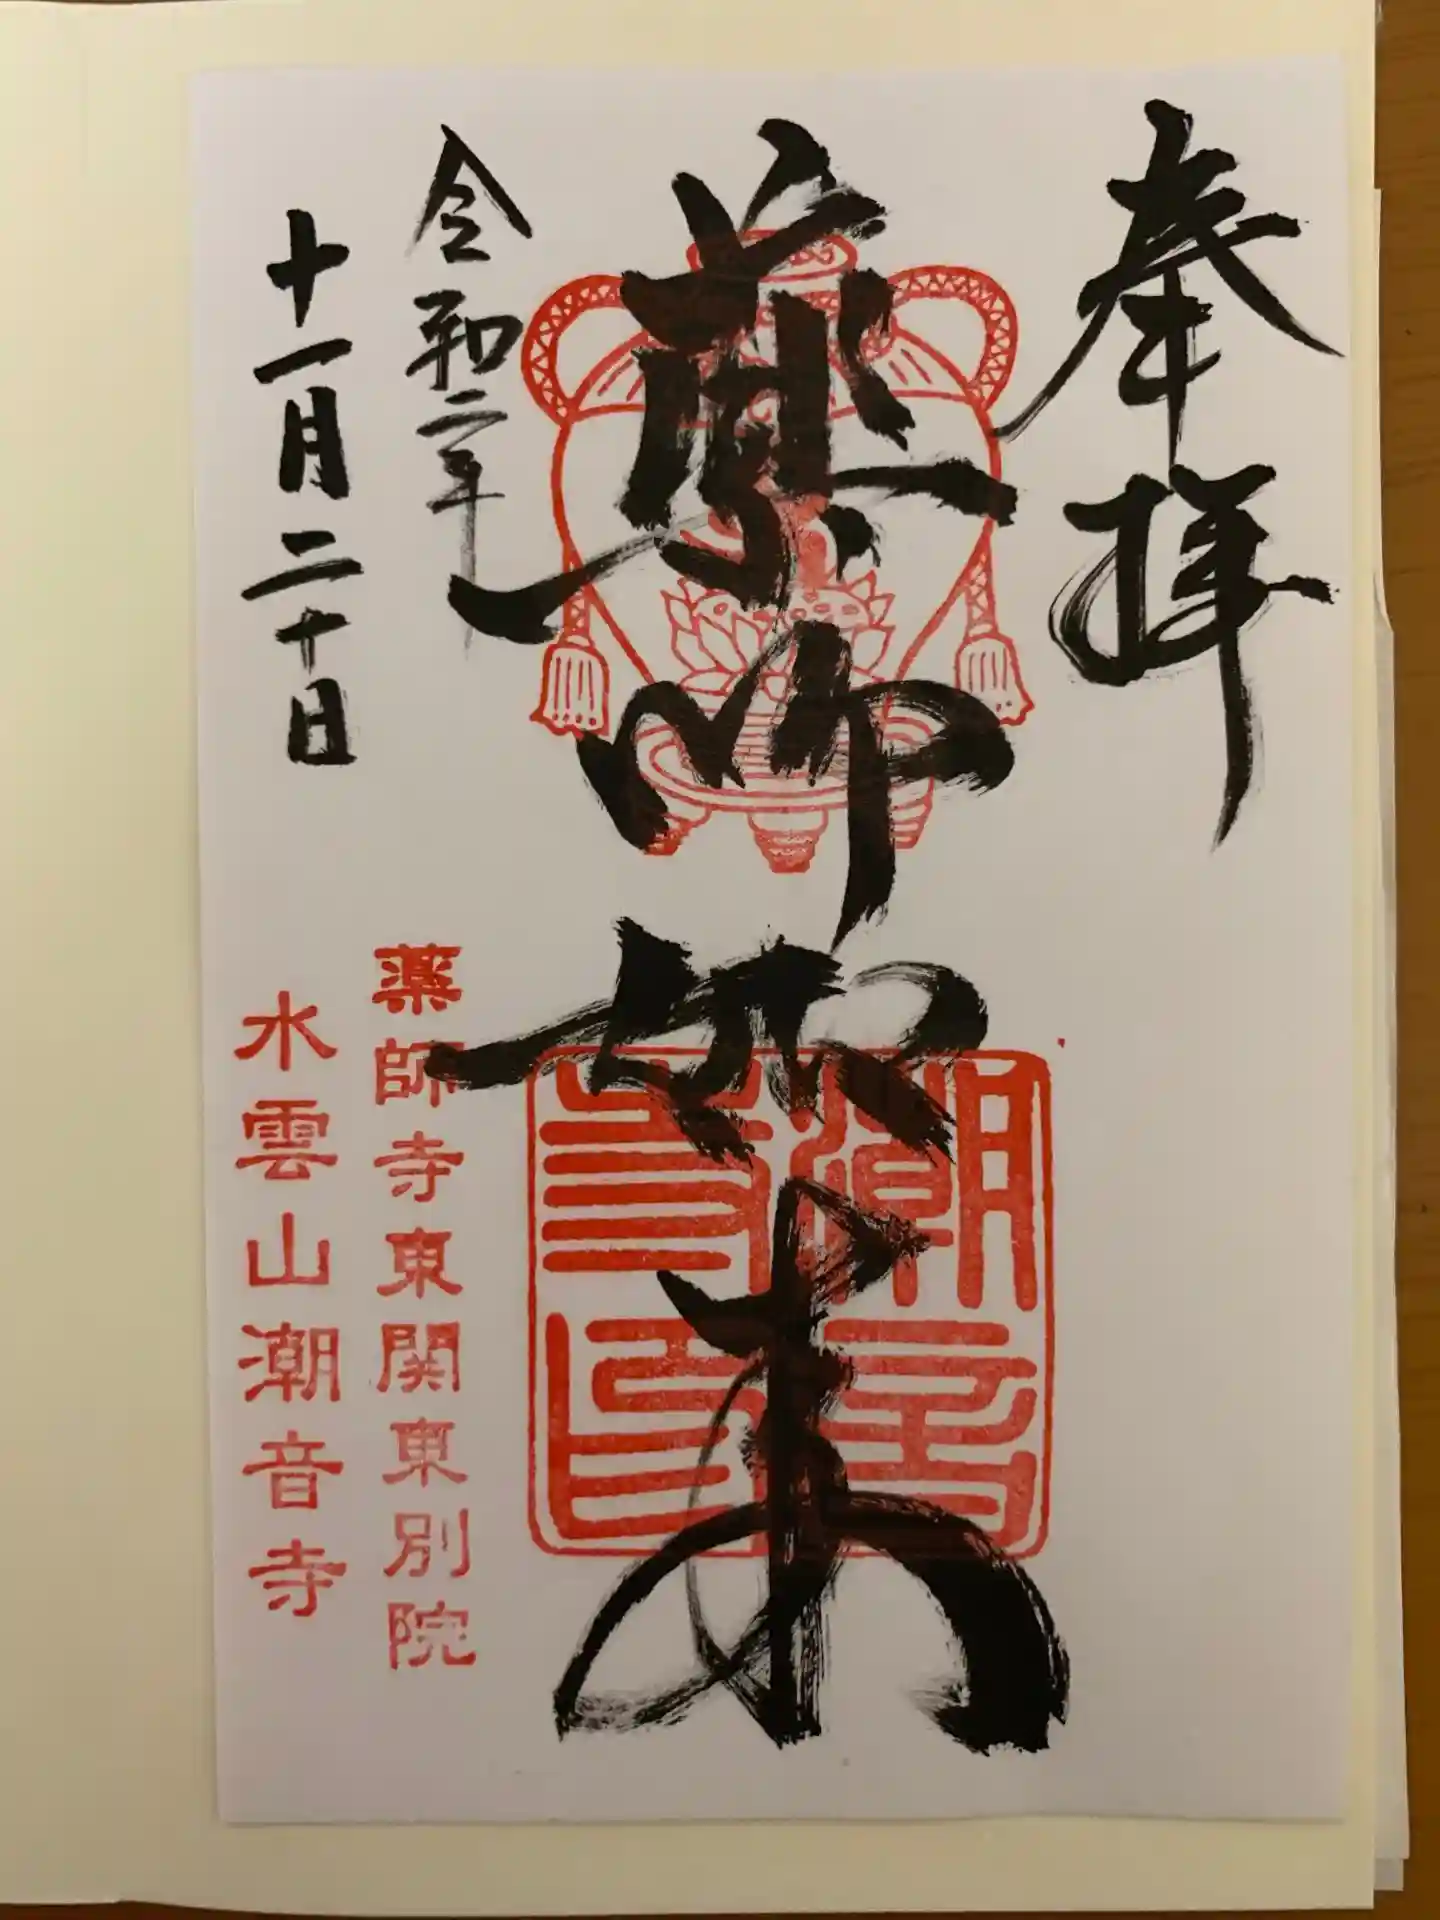 奉拝
薬師如来
令和二年
十一月二十日
薬師寺東関東別院
水雲山潮音寺
潮音寺印